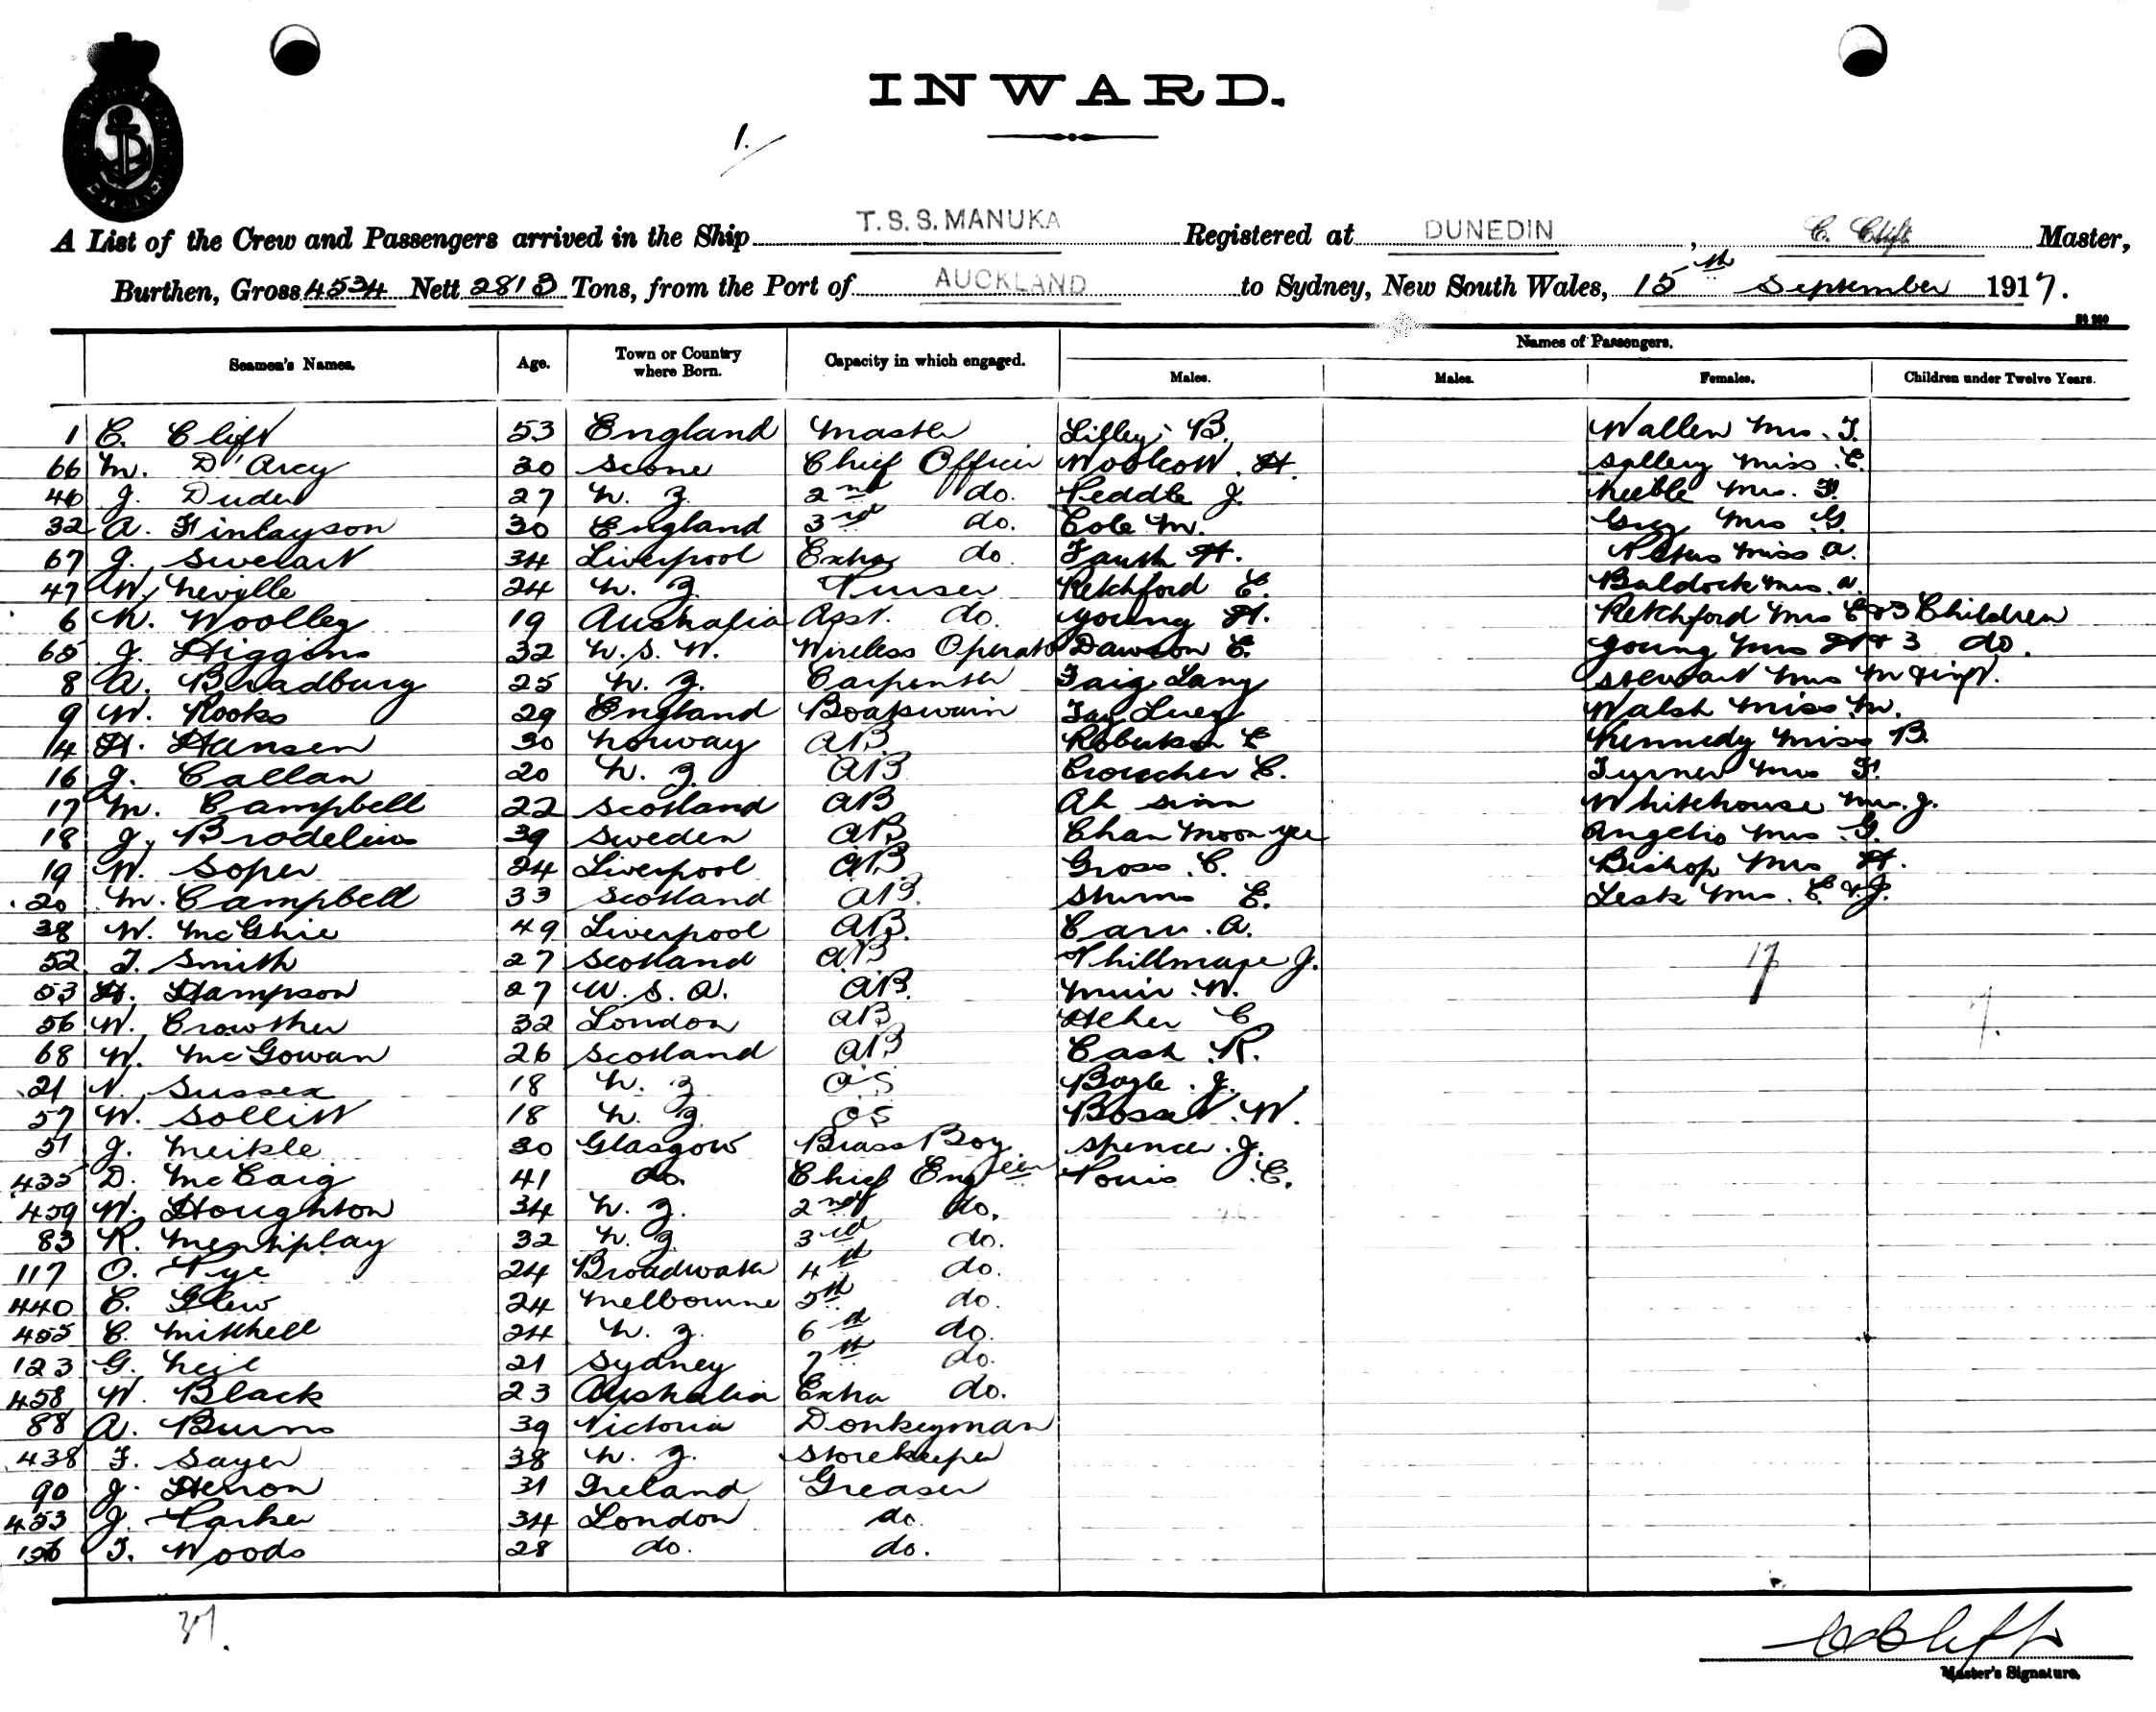 INWARD.
1.
A List of the Crew and Passengers arrived in the Ship T.S.S. MANUKA Registered at DUNEDIN, C. Clift Master,
Burthen, Gross 4534 Nett 2813 Tons, from the Port of AUCKLAND to Sydney, New South Wales, 15th September 1917.
Names of Passengers.
Seamen's Names. Age. Town or Country where Born. Capacity in which engaged. Males. Males. Females. Children under Twelve Years.
1 C. Clift 53 England Master Lilley B. Wallen Mrs. T.
66 M. D'Arcy 30 Scone Chief Officer Woolcott H. Miss C.
40 J. Duder 27 N. Z. 2nd do. Peddle J. Keeble Mrs. F.
32 A. Finlayson 30 England 3rd do. Cole M. Mrs G.
67 J. 34 Liverpool Extra do. H. Miss A.
47 W. Neville 24 N. Z. Purser Retchford C. Baldock Mrs. A.
6 N. Woolley 19 Australia Asst. do. Young H. Retchford Mrs C & 3 Children
65 J. Higgins 32 N. S. W. Wireless Operator Dawson C. Young Mrs H & 3 do.
8 A. Bradbury 25 N. Z. Carpenter Mrs M & inft.
9 W. Rooks 29 England Boatswain Walsh Miss M.
14 H. Hansen 30 Norway AB Robertson C Kennedy Miss B.
16 J. Callan 20 N. Z. AB Croucher C. Turner Mrs F.
17 M. Campbell 22 Scotland AB Ah Sinn Whitehouse Mrs. J.
18 J. Brodelius 39 Sweden AB Chan Moon Yee Angelis Mrs G.
19 W. Soper 24 Liverpool AB Gross C. Bishop Mrs H.
20 M. Campbell 33 Scotland AB. E. Lesk Mrs. C & J.
38 W. McGhie 49 Liverpool AB. A.
52 T. Smith 27 Scotland AB J. 17
53 H. Hampson 27 U. S. A. AB. Muir W.
56 W. Crowther 32 London AB C 7.
68 W. McGowan 26 Scotland AB Cash R.
21 V. Sussex 18 N. Z. OS Boyle J.
57 W. Sollitt 18 N. Z. OS W.
51 J. Meikle 30 Glasgow Brass Boy Spence J.
435 D. McCaig 41 do. Chief Engineer C.
459 W. Houghton 34 N. Z. 2nd do.
83 R. Mentiplay 32 N. Z. 3rd do.
117 O. Pye 24 Broadwater 4th do.
440 C. Glew 24 Melbourne 5th do.
455 C. Mitchell 24 N. Z. 6th do.
123 G. Neil 21 Sydney 7th do.
458 W. Black 23 Australia Extra do.
88 A. Burns 39 Victoria Donkeyman
438 F. Sayer 38 N. Z. Storekeeper
90 J. Herron 31 Ireland Greaser
453 J. Parker 34 London do.
T. Woods 28 do. do.
37.
C Clift
Master's Signature.